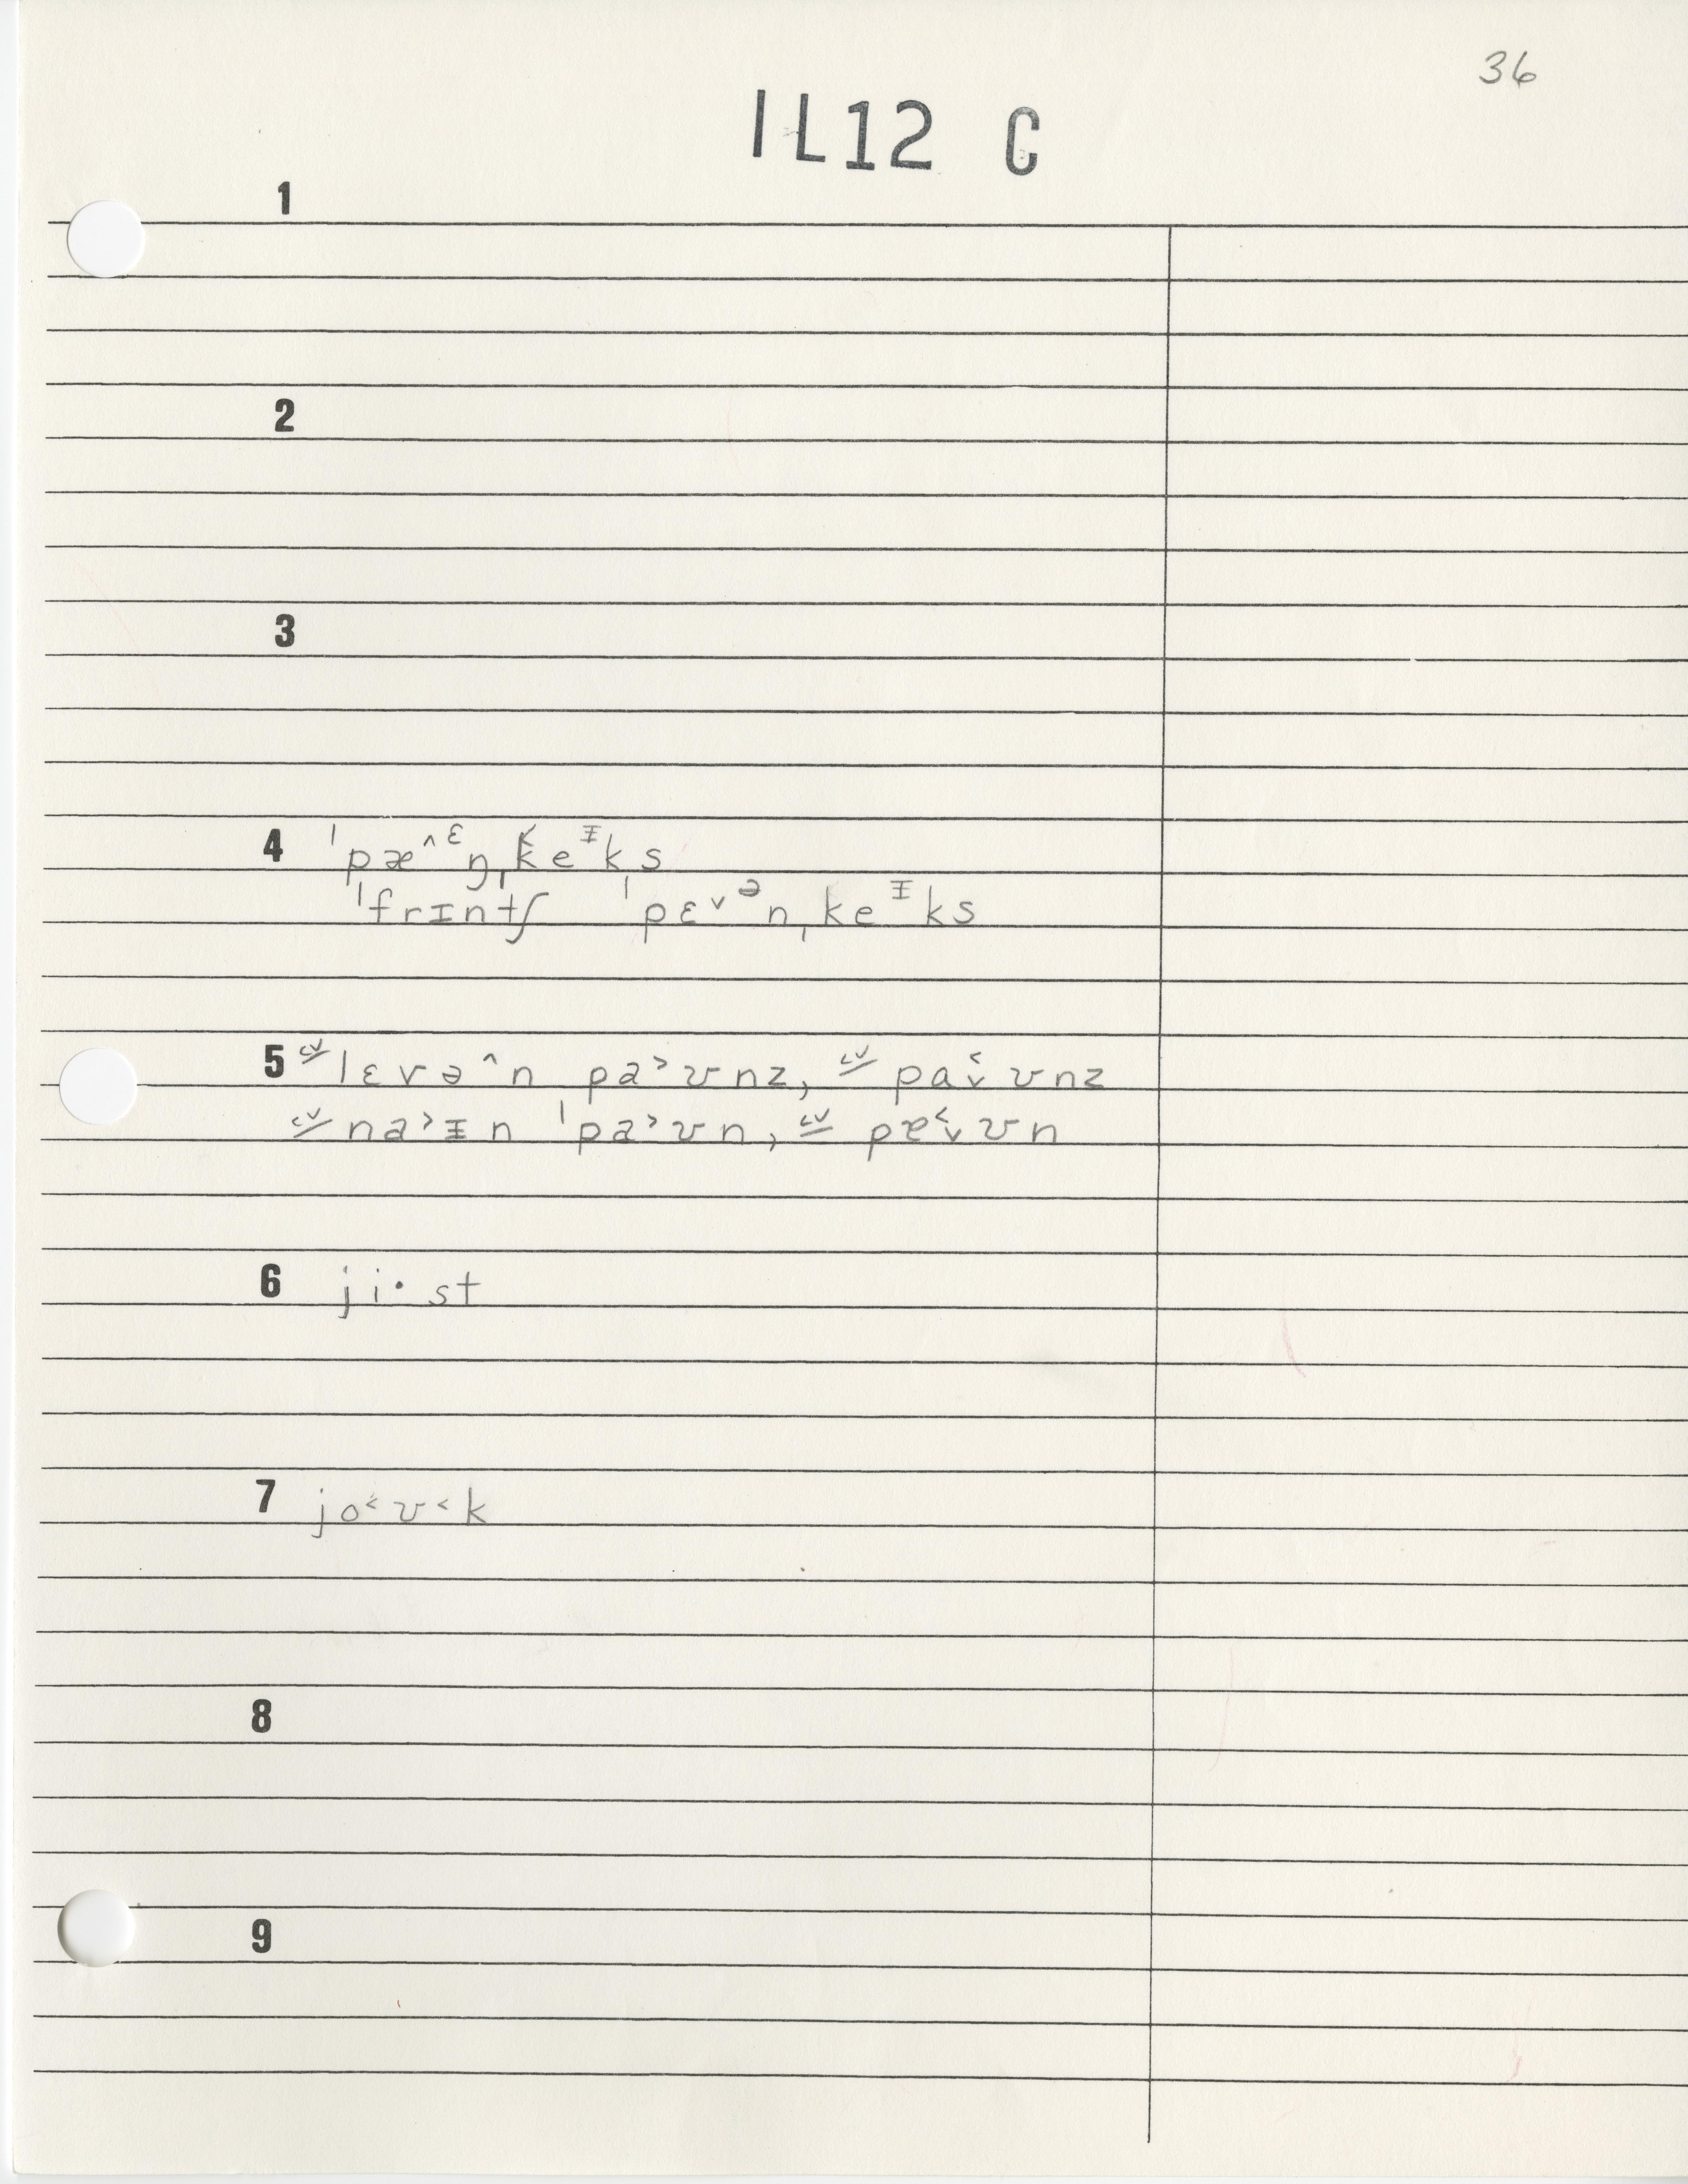 36
IL12 C
1
2
3
4 ˈpæ^ᵋŋˌk̆eᶧks
ˈfrɪntʃ ˈpɛ˅ᵊnˌkeᶧks
5 cv lɛvə^n pa˃ʊnz, cv pa˂˅ʊnz
cv na˃ᵻn ˈpa˃ʊn, cv pæ˂˅ʊn
6 ji·st
7 jo˂ʊ˂k
8
9